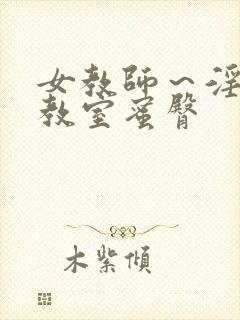 女教师～淫
教室蜜臀
木紫傾